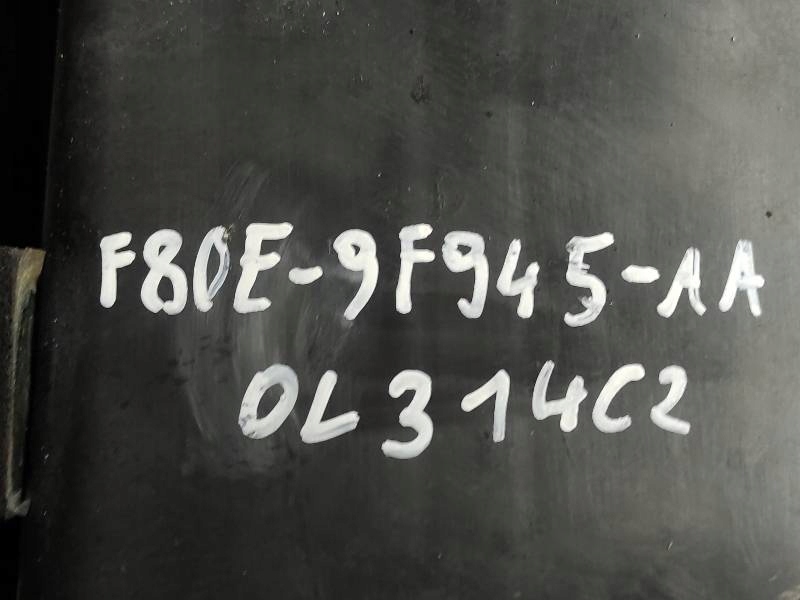 F80E-9F945-AA
OL314C2